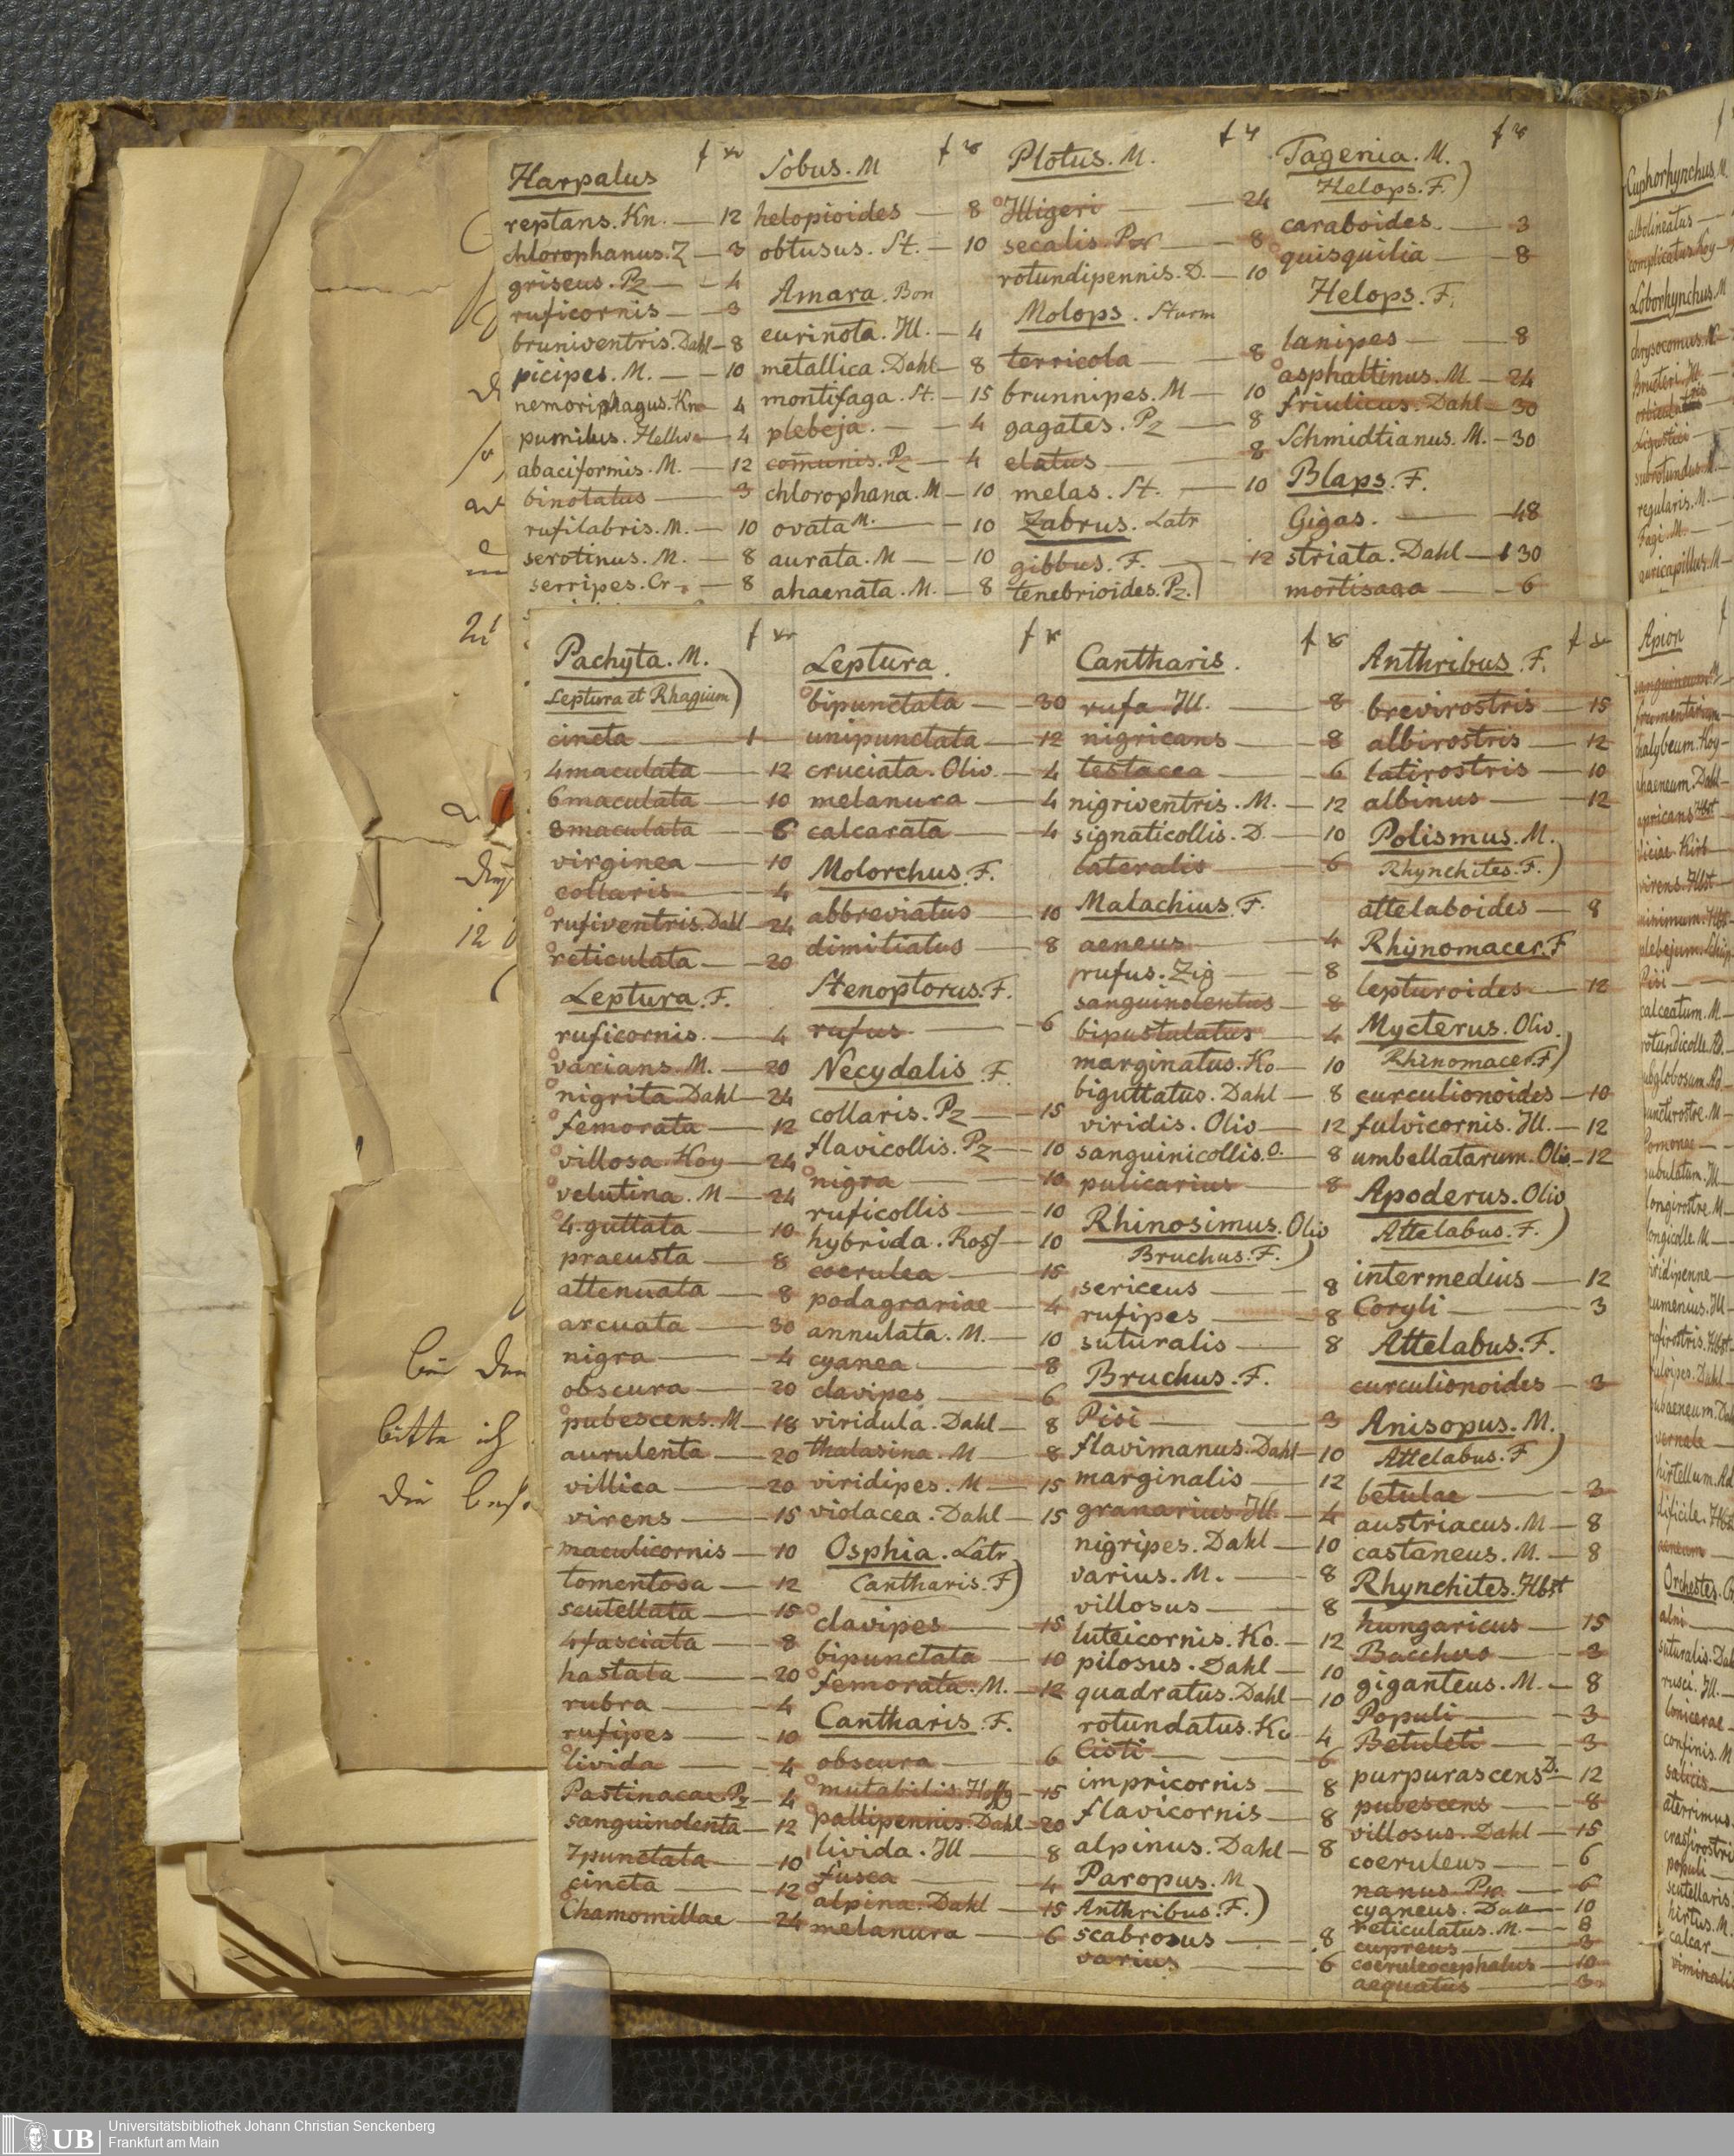 Harpalus f xr
reptans. Kn. — 12
chlorophanus. Z — 3
griseus. Pz — 4
ruficornis — 3
bruniventris. Dahl — 8
picipes. M. — 10
nemoriphagus. Kn — 4
pumilus. Hellw — 4
abaciformis. M. — 12
binotatus — 3
rufilabris. M. — 10
serotinus. M. — 8
serripes. Cr. — 8
Sobus. M f xr
helopioides — 8
obtusus. St. — 10
Amara. Bon
eurinota. Ill. — 4
metallica. Dahl — 8
montifaga. St. — 15
plebeja. — 4
com̄unis. Pz — 4
chlorophana. M — 10
ovata M. — 10
aurata. M — 10
ahaenata. M. — 8
Plotus. M. f xr
Illigeri — 24
secalis. — 8
rotundipennis. D. — 10
Molops. Sturm
terricola — 8
brunnipes. M — 10
gagates. Pz — 8
elatus — 8
melas. St. — 10
Zabrus. Latr
gibbus. F. — 12
tenebrioides. Pz.)
Tagenia. M. f xr
Helops. F.)
caraboides. — 3
quisquilia — 8
Helops. F.
lanipes — 8
asphaltinus. M. — 24
friulicus. Dahl — 30
Schmidtianus. M. — 30
Blaps. F.
Gigas. — 48
striata. Dahl — 1 30
mortisaga — 6
Pachyta. M. f xr
Leptura et Rhagium)
cincta — 1
4maculata — 12
6maculata — 10
8maculata — 6
virginea — 10
collaris — 4
rufiventris. Dahl — 24
reticulata — 20
Leptura. F.
ruficornis. — 4
varians. M. — 20
nigrita Dahl — 24
femorata — 12
villosa Hoy — 24
velutina. M — 24
4.guttata — 10
praeusta — 8
attenuata — 8
arcuata — 30
nigra — 4
obscura — 20
pubescens. M — 18
aurulenta — 20
villica — 20
virens — 15
maculicornis — 10
tomentosa — 12
scutellata — 15
4fasciata — 8
hastata — 20
rubra — 4
rufipes — 10
livida — 4
Pastinacae. Pz — 4
sanguinolenta — 12
7punctata — 10
cincta — 12
Chamomillae — 24
Leptura. f xr
bipunctata — 30
unipunctata — 12
cruciata. Oliv. — 4
melanura — 4
calcarata — 4
Molorchus. F.
abbreviatus — 10
dimitiatus — 8
Stenoptorus. F.
rufus — 6
Necydalis F.
collaris. Pz — 15
flavicollis. Pz — 10
nigra — 10
ruficollis — 10
hybrida. Ross — 10
coerulea — 15
podagrariae — 4
annulata. M. — 10
cyanea — 8
clavipes — 6
viridula. Dahl — 8
thalasina. M — 8
viridipes. M — 15
violacea. Dahl — 15
Osphia. Latr
Cantharis. F)
clavipes — 15
bipunctata — 10
femorata. M. — 12
Cantharis. F.
obscura — 6
mutabilis. Hoffg — 15
pallipennis. Dahl — 20
livida. Ill — 8
fusca — 4
alpina. Dahl — 15
melanura — 6
Cantharis. f xr
rufa Ill. — 8
nigricans — 8
testacea — 6
nigriventris. M. — 12
signaticollis. D — 10
lateralis — 6
Malachius. F.
aeneus — 4
rufus. Zig — 8
sanguinolentus — 8
bipustulatus — 4
marginatus. Ko — 10
biguttatus. Dahl — 8
viridis. Oliv — 12
sanguinicollis. O. — 8
pulicarius — 8
Rhinosimus. Oliv
Bruchus. F.)
sericeus — 8
rufipes — 8
suturalis — 8
Bruchus. F.
Pisi — 3
flavimanus. Dahl — 10
marginalis — 12
granarius Ill. — 4
nigripes. Dahl — 10
varius. M. — 8
villosus — 8
luteicornis. Ko. — 12
pilosus. Dahl — 10
quadratus. Dahl — 10
rotundatus. Ko — 4
Cisti — 6
impricornis — 8
flavicornis — 8
alpinus. Dahl — 8
Paropus. M
Anthribus. F.)
scabrosus — 8
varius — 6
Anthribus. F. f xr
brevirostris — 15
albirostris — 12
latirostris — 10
albinus — 12
Polismus. M.
Rhynchites. F.)
attelaboides — 8
Rhynomacer. F
lepturoides — 12
Mycterus. Oliv.
Rhinomacer. F)
curculionoides — 10
fulvicornis. Ill. — 12
umbellatarum. Oliv. — 12
Apoderus. Oliv
Attelabus. F.)
intermedius — 12
Coryli — 3
Attelabus. F.
curculionoides — 3
Anisopus. M.
Attelabus. F)
betulae — 3
austriacus. M — 8
castaneus. M. — 8
Rhynchites. Hbst
hungaricus — 15
Bacchus — 3
giganteus. M. — 8
Populi — 3
Betuleti — 3
purpurascens D. — 12
pubescens — 8
villosus. Dahl — 15
coeruleus — 6
nanus. — 6
cyaneus. Dahl — 10
reticulatus. M. — 8
cupreus — 3
coeruleocephalus — 10
aequatus — 3
Cyphorhynchus. M.
albolineatus —
complicatus. Hoy —
Loborhynchus. M
chrysocomus.
Bructeri. Ill —
Ligustici —
subrotundus. M. —
regularis. M. —
Fagi. M. —
auricapillus. M —
Apion
sanguineum
frumentarium —
chalybeum. Hoy —
ahaeneum. Dahl —
apricans Hbst —
viciae. Kirb —
virens. Hbst —
minimum. Hbst
Pisi —
calceatum. M. —
Pomonae —
subulatum. Ill —
longirostre. M —
longicolle. M —
viridipenne —
vernale —
hirtellum.
dificile. Hbst
Orchestes.
alni —
suturalis. Dahl
rusci. Ill. —
lonicerae —
confinis. M
salicis —
aterrimus.
populi —
scutellaris.
hirtus. M.
calcar —
viminalis
12
bitte ich
UB
Universitätsbibliothek Johann Christian Senckenberg
Frankfurt am Main